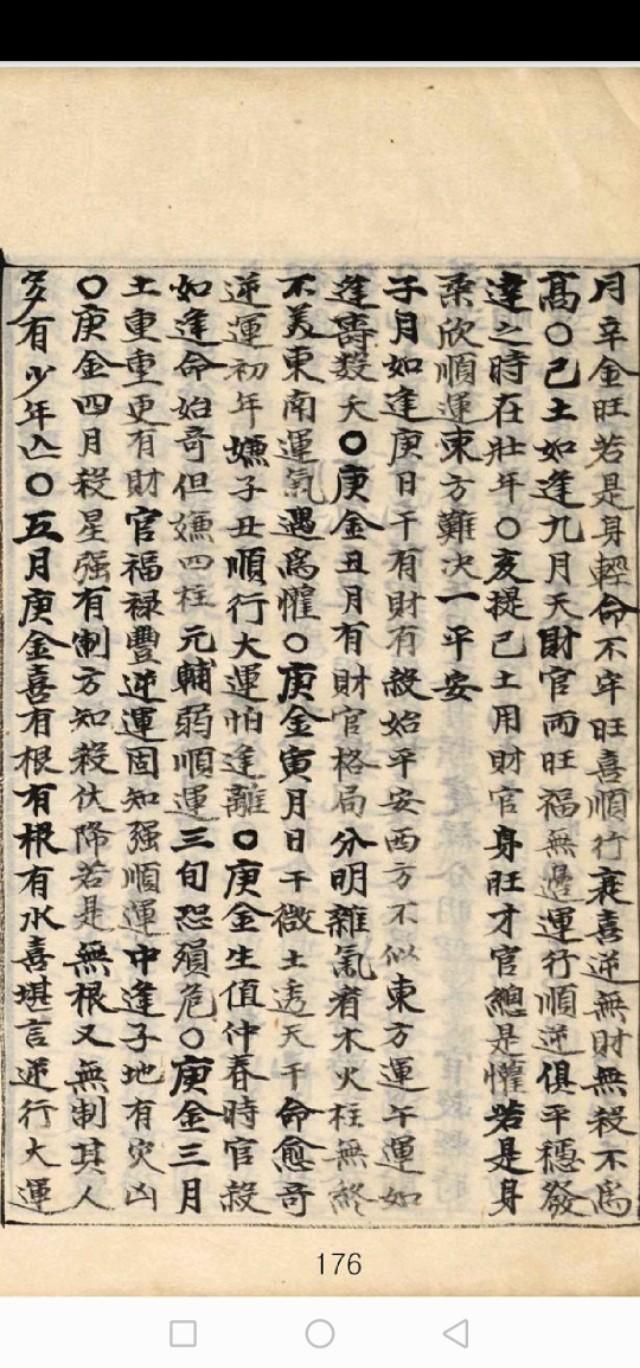 月辛金旺若是身輕命不牢旺喜順行衰喜逆無財無殺不爲
髙○己土如逢九月天財官两旺福無邊運行順逆俱平穩發
達之時在壯年○亥提己土用財官身旺才官總是懽若是身
柔欣順運東方難决一平安
子月如逢庚日干有財有殺始平安西方不似東方運午運如
逢壽数夭○庚金丑月有財官格局分明雜氣者木火柱無終
不美東南運氣遇爲懽○庚金寅月日干微土透天干命愈奇
逆運初年嫌子丑順行大運怕逢離○庚金生值仲春時官殺
如逢命始奇但嫌四柱元輔弱順運三旬恐殞危○庚金三月
土重重更有財官福禄豐逆運固知强順運中逢子地有灾凶
○庚金四月殺星强有制方知殺伏降若是無根又無制其人
多有少年亾○五月庚金喜有根有根有水喜堪言逆行大運
176